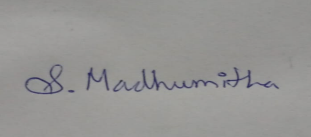 S. Madhumitha